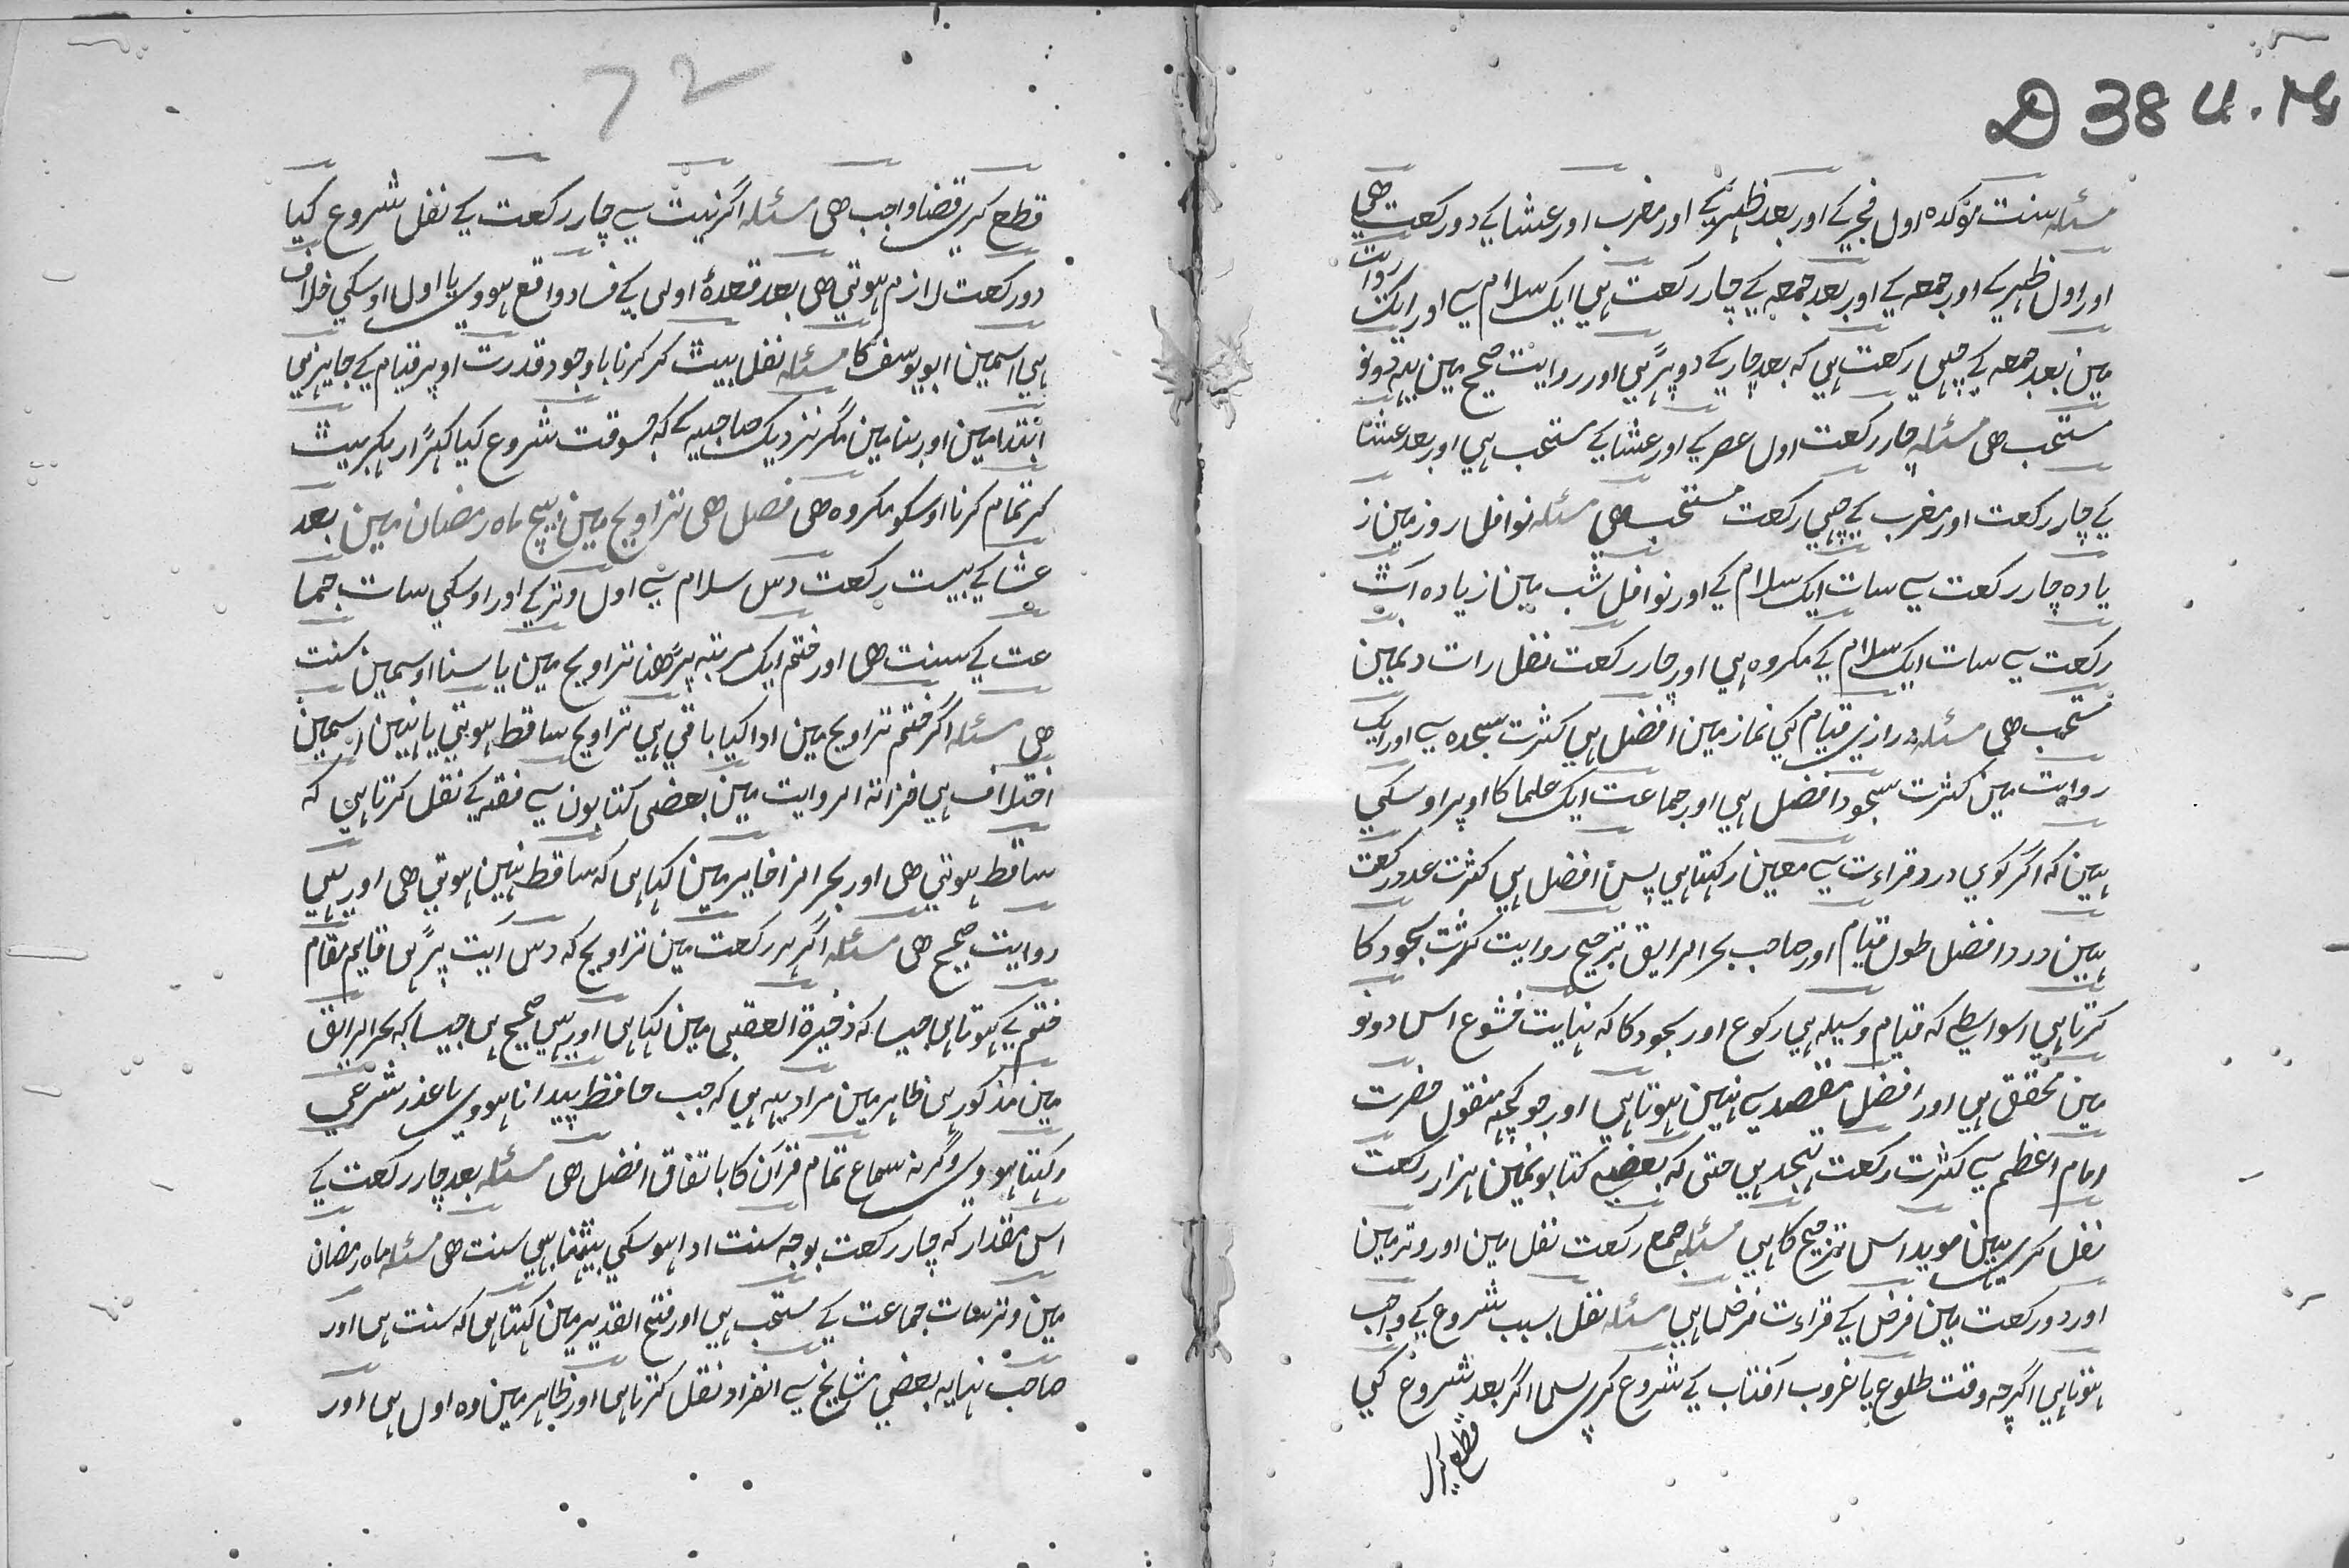 D 38 U. Ms
مسئلہ سنت مؤکدہ اول فجر کے اور بعد ظہر کے اور مغرب اور عشا کے دو رکعت ھی
اور اول ظہر کے اور جمعہ کے اور بعد جمعہ کے چار رکعت ہی ایک سلام سے اور ایک روایت
مین بعد جمعہ کے چھی رکعت ہی کہ بعد چار کے دو پڑہی اور روایت صحیح مین یہہ دونو
مستحب ھی مسئلہ چار رکعت اول عصر کے اور عشا کے مستحب ہی اور بعد عشا
کے چار رکعت اور مغرب کے چھی رکعت مستحب ھی مسئلہ نوافل روز مین ز
یادہ چار رکعت سے سات ایک سلام کے اور نوافل شب مین زیادہ آٹ
رکعت سے سات ایک سلام کے مکروہ ہی اور چار رکعت نفل رات دنمین
مستحب ھی مسئلہ درازی قیام کی نماز مین افضل ہی کثرت سجدہ سے اور ایک
روایت مین کثرت سجود افضل ہی اور جماعت ایک علما کا اوپر اوسکی
ہین کہ اگر کوی درود قراءت سے معین رکہتا ہی پس افضل ہی کثرت عدد رکعت
ہین درد افضل طول قیام اور صاحب بحر الرایق ترجیح روایت کثرت سجود کا
کرتا ہی اسواسطے کہ قیام وسیلہ ہی رکوع اور سجود کا کہ نہایت خشوع اس دونو
مین محقق ہی اور افضل مقصد سے نہین ہوتا ہی اور جو کچہہ منقول حضرت
امام اعظم سے کثرت رکعت تہجد ہی حتی کہ بعضی کتابونمین ہزار رکعت
نقل کری ہین موید اس ترجیح کا ہی مسئلہ جمع رکعت نفل مین اور وتر مین
اور دو رکعت مین فرض کے قراءت فرض ہی مسئلہ نفل بسبب شروع کے واجب
ہوتا ہی اگرچہ وقت طلوع یا غروب آفتاب کے شروع کری پس اگر بعد شروع کی
72
قطع کری قضا واجب ھی مسئلہ اگر نیت سے چار رکعت کے نفل شروع کیا
دو رکعت لازم ہوتی ھی بعد قعدۂ اولی کے فساد واقع ہووی یا اول اوسکی خلاف
ہی اسمین ابو یوسف کا مسئلہ نفل بیٹ کر کرنا باوجود قدرت اوپر قیام کے جایز ہی
ابتدا مین اور بنا مین مگر نزدیک صاحبیہ کے کہ جسوقت شروع کیا کہڑا رہکر بیٹ
کر تمام کرنا اوسکو مکروہ ھی فصل ھی تراویح مین بیچ ماہ رمضان مین بعد
عشا کے بیست رکعت دس سلام سے اول وتر کے اور اوسکی سات جما
عت کے سنت ھی اور ختم ایک مرتبہ پڑھنا تراویح مین یا سننا اوسمین سنت
ھی مسئلہ اگر ختم تراویح مین ادا کیا باقی ہی تراویح ساقط ہوتی یا نہین اسمین
اختلاف ہی خزانۃ الروایت مین بعضی کتابون سے فقہ کے نقل کرتا ہی کہ
ساقط ہوتی ھی اور بحر الزاخایر مین کہا ہی کہ ساقط نہین ہوتی ھی اور یہی
روایت صحیح ھی مسئلہ اگر ہر رکعت مین تراویح کہ دس آیت پڑہی قایم مقام
ختم کے ہوتا ہی جیسا کہ ذخیرۃ العقبی مین کہا ہی اور یہی صحیح ہی جیسا کہ بحر الرایق
مین مذکور ہی ظاہر مین مراد یہہ ہی کہ جب حافظ پیدا نا ہووی یا عذر شرعی
رکہتا ہووی وگرنہ سماع تمام قرآن کا باتفاق افضل ھی مسئلہ بعد چار رکعت کے
اس مقدار کہ چار رکعت بوجہ سنت ادا ہوسکی بیٹہنا بہی سنت ھی مسئلہ ماہ رمضان
مین وتر سات جماعت کے مستحب ہی اور فتح القدیر مین کہتا ہی کہ سنت ہی اور
صاحب نہایہ بعضی مشایخ سے انفراد نقل کرتا ہی اور ظاہر مین وہ اول ہی اور